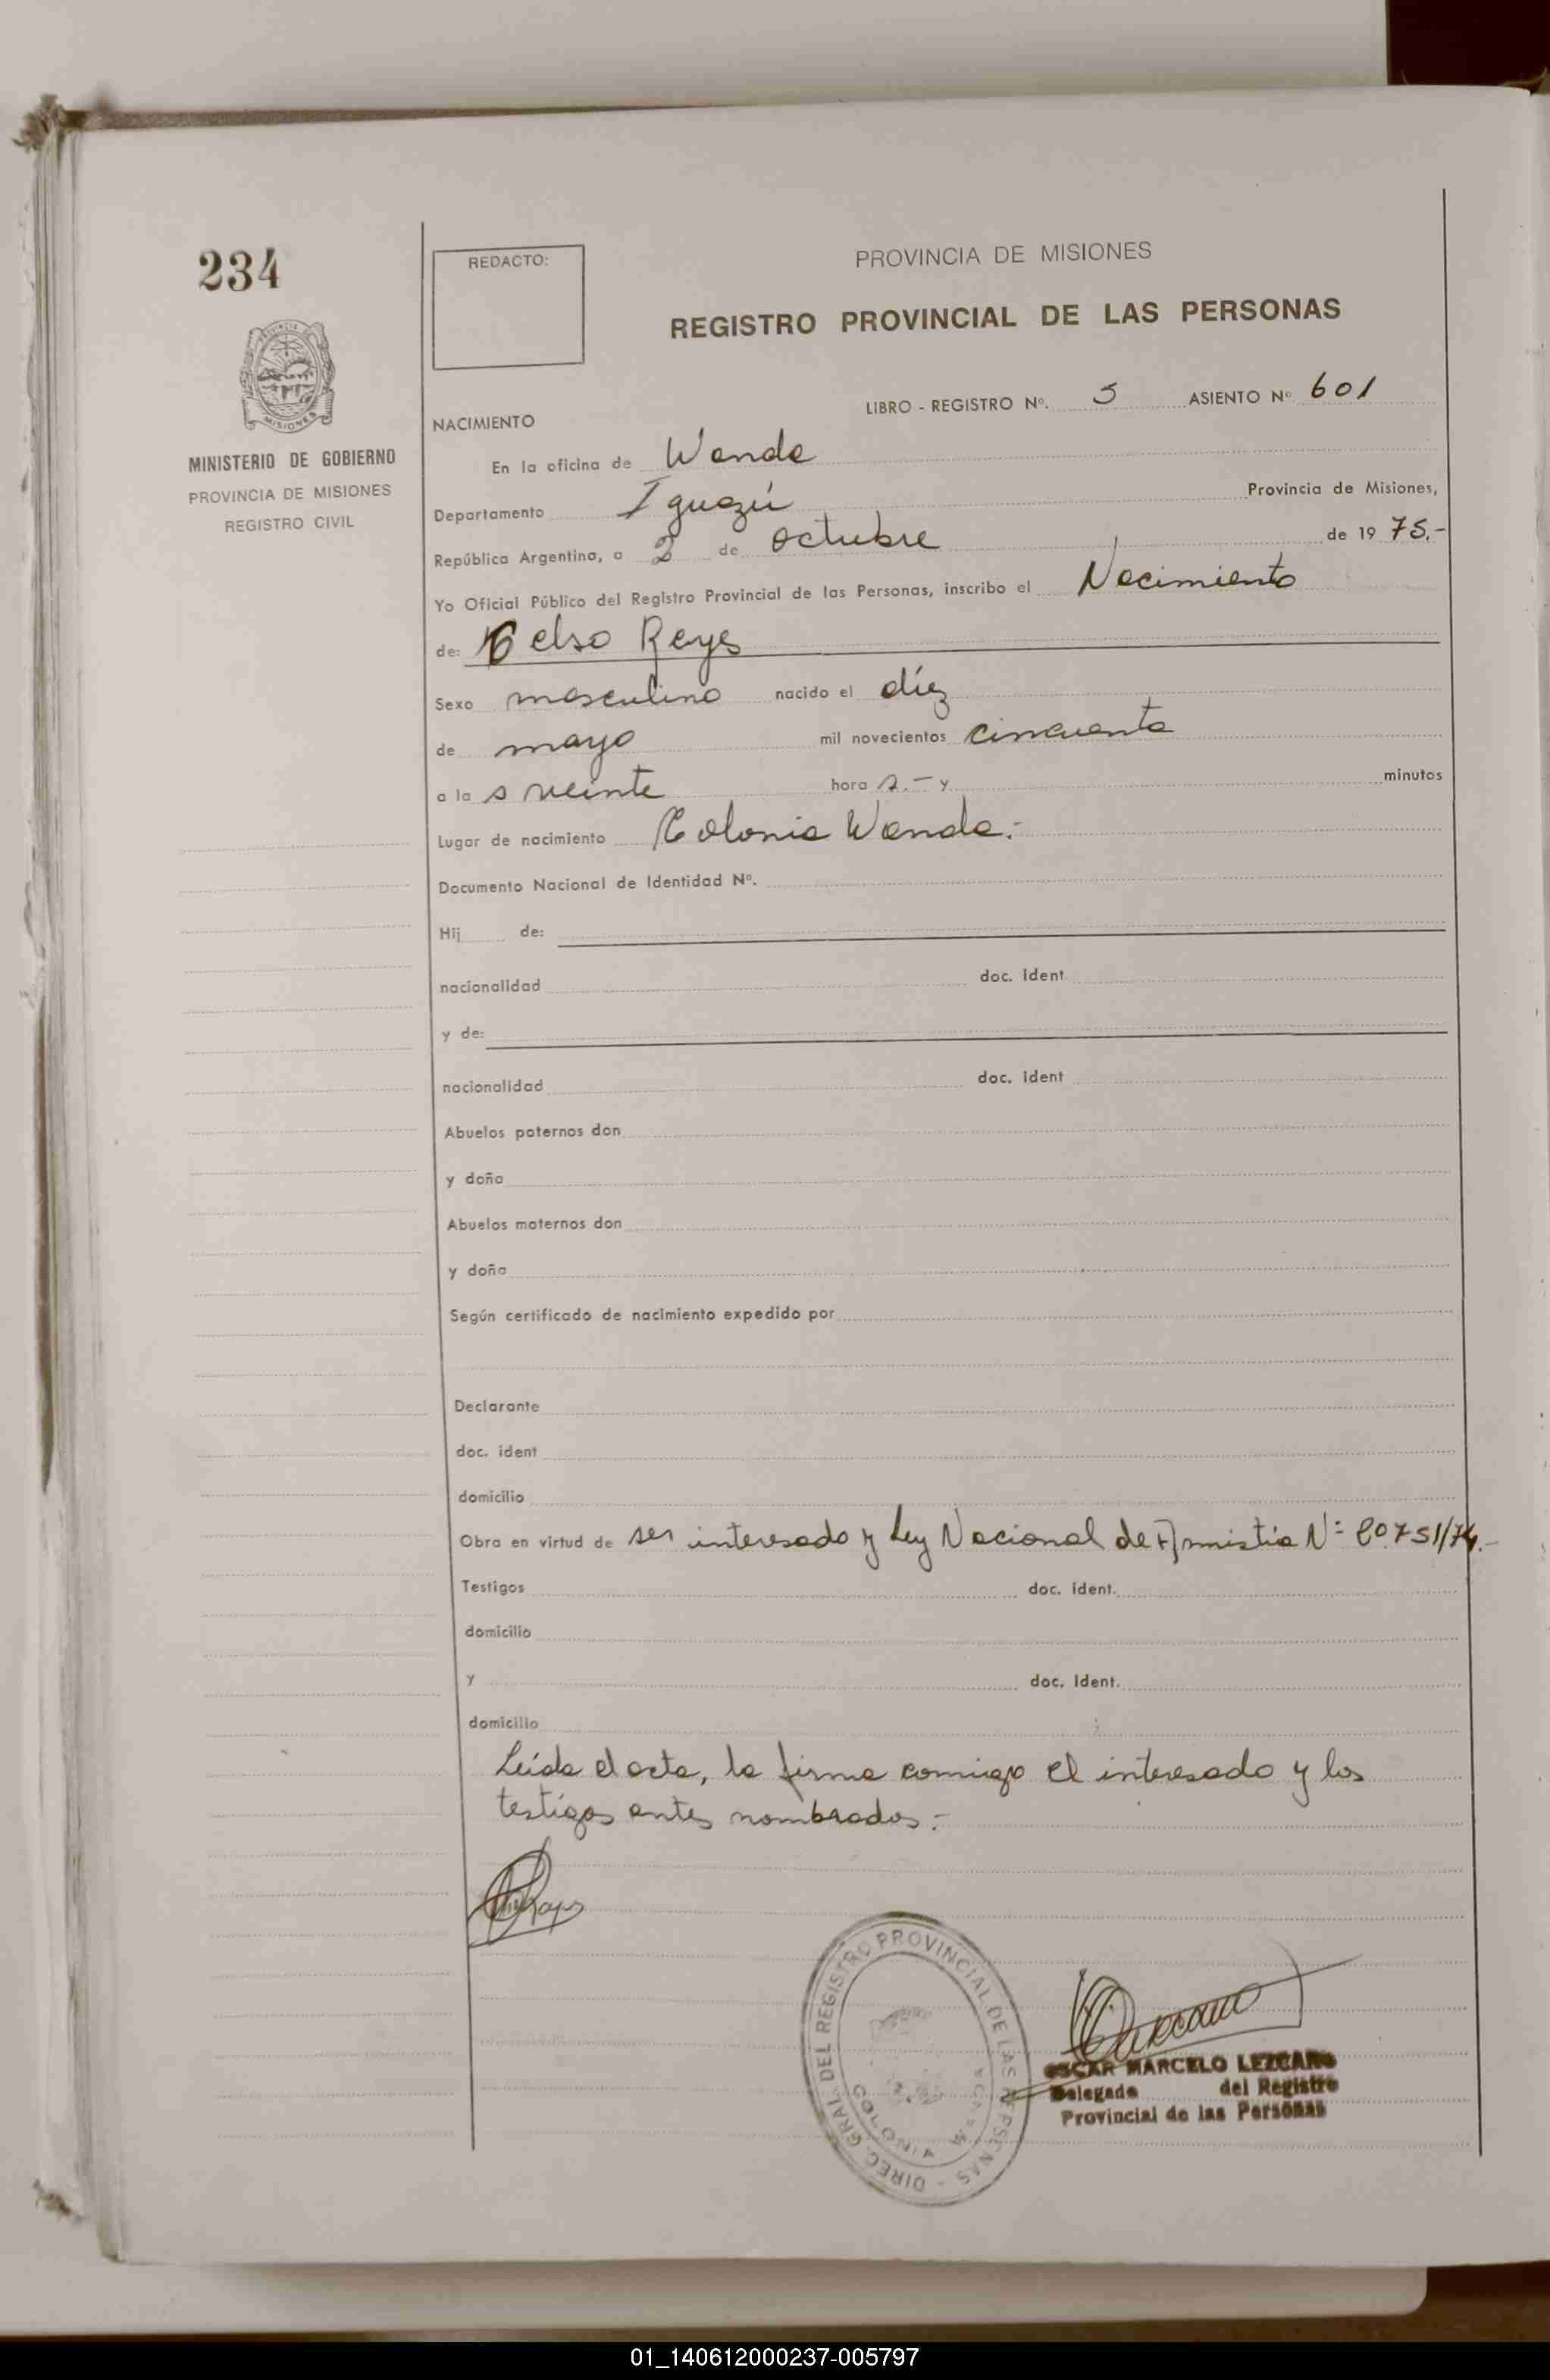 234
REDACTO:
PROVINCIA DE MISIONES
REGISTRO PROVINCIAL DE LAS PERSONAS
MINISTERIO DE GOBIERNO
PROVINCIA DE MISIONES
REGISTRO CIVIL
LIBRO - REGISTRO Nº. 5 ASIENTO Nº 601
NACIMIENTO
En la oficina de Wanda
Departamento Iguazú Provincia de Misiones,
República Argentina, a 2 de octubre de 19 75.-
Yo Oficial Público del Registro Provincial de las Personas, inscribo el Nacimiento
de: Celso Reyes
Sexo masculino nacido el díez
de mayo mil novecientos cincuenta
a la s veinte hora s.- y minutos
Lugar de nacimiento Colonia Wanda.-
Documento Nacional de Identidad Nº.
Hij de:
nacionalidad doc. Ident
y de:
nacionalidad doc. Ident
Abuelos paternos don
y doña
Abuelos maternos don
y doña
Según certificado de nacimiento expedido por
Declarante
doc. ident
domicilio
Obra en virtud de ser interesado y Ley Nacional de Amnistía Nº 20.751/74.-
Testigos doc. ident.
domicilio
y doc. Ident.
domicilio
Leída el acta, la firma comigo el interesado y los
testigos antes nombrados.-
DIREC. GRAL. DEL REGISTRO PROVINCIAL DE LAS PERSENAS -
COLONIA WANDA
OSCAR MARCELO LEZCANO
Delegado del Registro
Provincial de las Personas
01_140612000237-005797